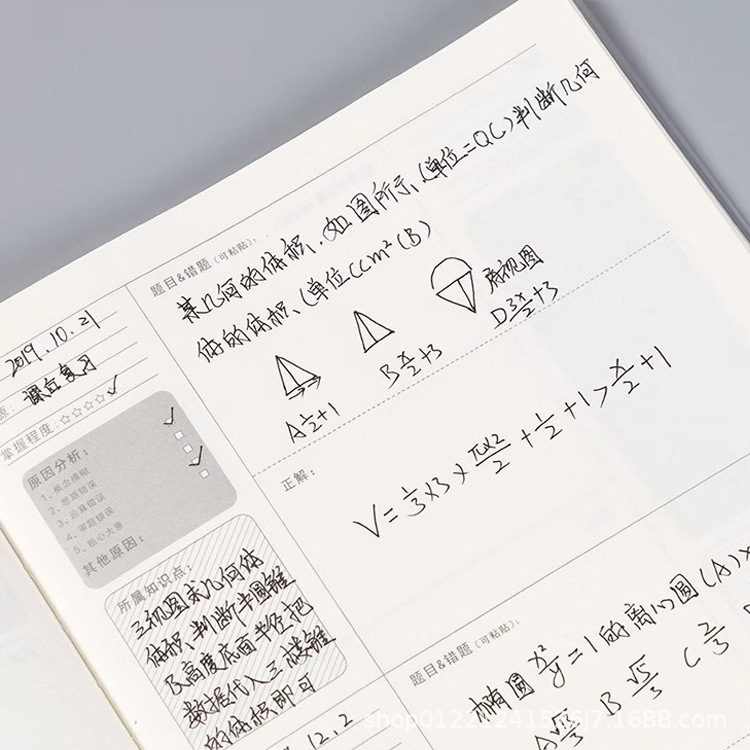 题目&错题（可粘贴）：
某几何的体积、如图所示、(单位=QC)判断几何
体的体积、(单位(Cm²(B)
俯视图
A ½+1
B x/2+3
D 3x/2+3
2019.10.21
源：课后复习
掌握程度：☆☆☆☆✓
原因分析：
1、概念模糊
2、思路错误
3、运算错误
4、审题错误
5、粗心大意
其他原因：
正解：
V=⅓×3×πx×2/2+½+1>x/2+1
所属知识点：
三视图求几何体
体积、判断半圆锥
及高度底面半径把
数据代入三棱锥
的体积即可
题目&错题（可粘贴）：
椭圆x²/y=1的离心圆(A)x
A √5/3 B √5/3 C 2/3
12.2